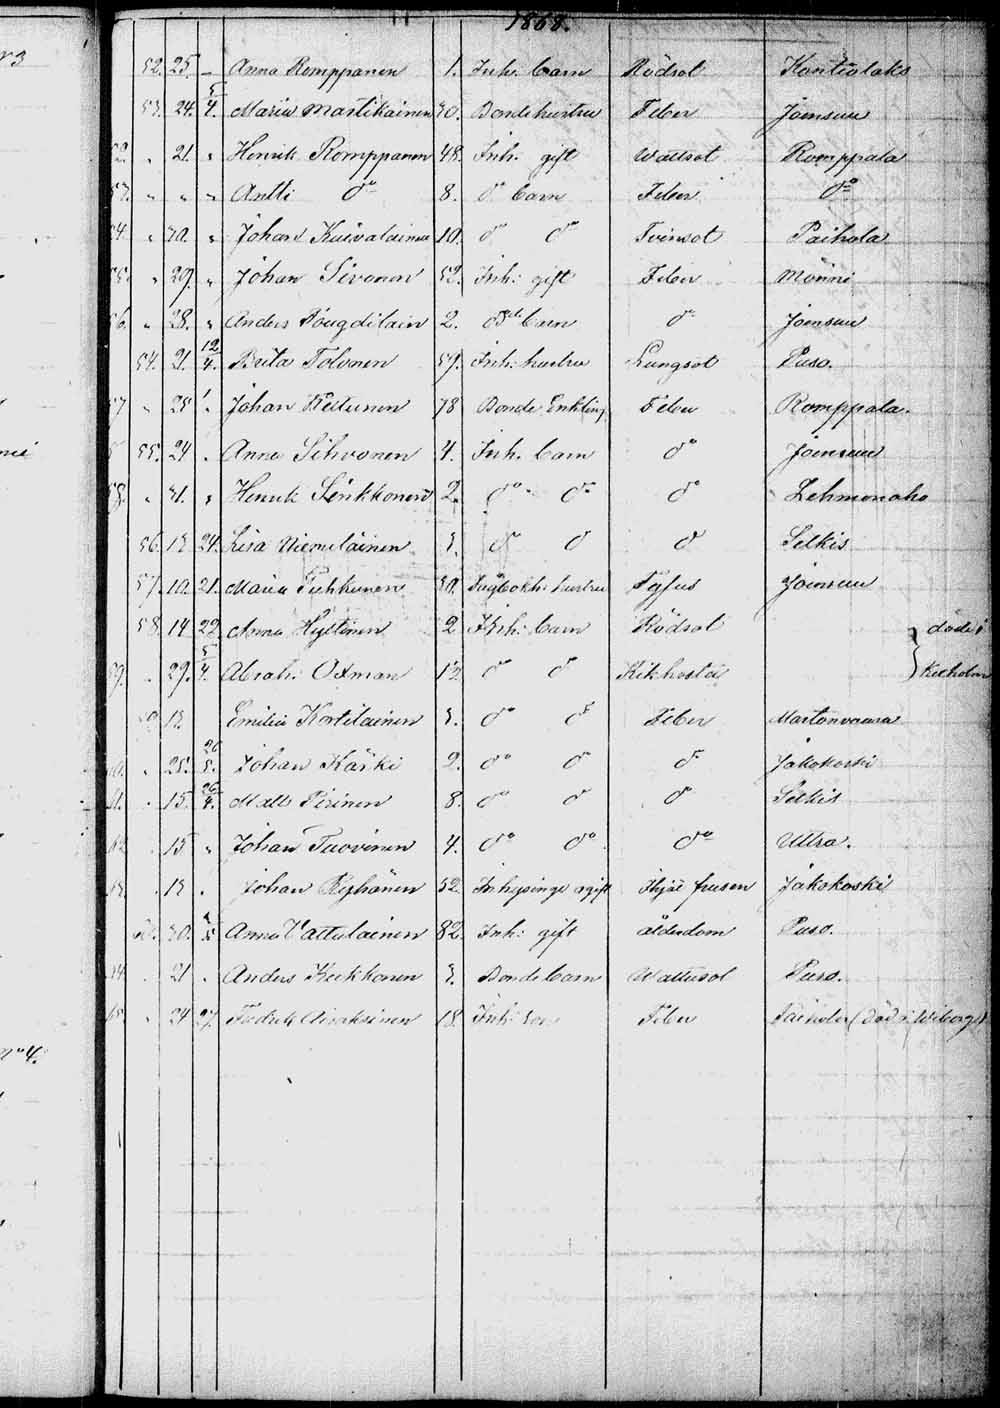 1868.
52. 25. – Anna Romppanen 1. Inh. barn Rödsot Kontiolaks
53. 24. 5/4. Maria Martikainen 30. Bonde hustru Feber Joensuu
52. " 21. " Henrik Romppanen 48. Inh. gift Wattsot Romppala
53. " " " Antti do 8. do barn Feber do
54. " 30. " Johan Kuivalainen 10. do do Tvinsot Paihola
55. " 29. " Johan Sivonen 52. Inh: gift Feber Mönni
56. " 28. " Anders 2. barn do Joensuu
54. 21. 12/4. Brita Tolvonen 59. Inh: hustru Lungsot Puso.
57 " 25 1/. Johan Keltunen 78 Bonde Enkling Feber Romppala.
55. 24 . Anna Sihvonen 4. Inh. barn do Joensuu
58. " 31. " Henrik Sinkkonen 2. do do do Lehmonaho
56. 13 24. Lisa Niemeläinen 3. do do do Selkis
57. 10. 21. Maria Puhkunen 50. hustru Tyfus Joensuu
58. 14 22 Anna Hyttinen 2 Inh: barn Rödsot
döde i
59. . 29. 5/4. Abrah: Oxman 12 do do Kikhosta Kexholm
59. 13. Emilia Kortilainen 3. do do Feber Martonvaara
60. . 25. 26/5. Johan Kärki 2. do do do Jakokoski
61. . 15. 26/4. Matts Pirinen 8. do do do Selkis
62 . 15. " Johan Tuovinen 4. do do do Utra.
63. . 13. . Johan Ryhänen 52. Inhysinge ogift Ihjäl frusen Jakokoski
60. 30. /5 Anna Vattulainen 82. Inh: gift ålderdom Puso.
64 . 21 . Anders Kukkonen 3. Bonde barn Wattusot Puso.
65 " 24 27. Fredrik Airaksinen 18. Inh: son Feber Paihola (död i Wiborg)
No 4.